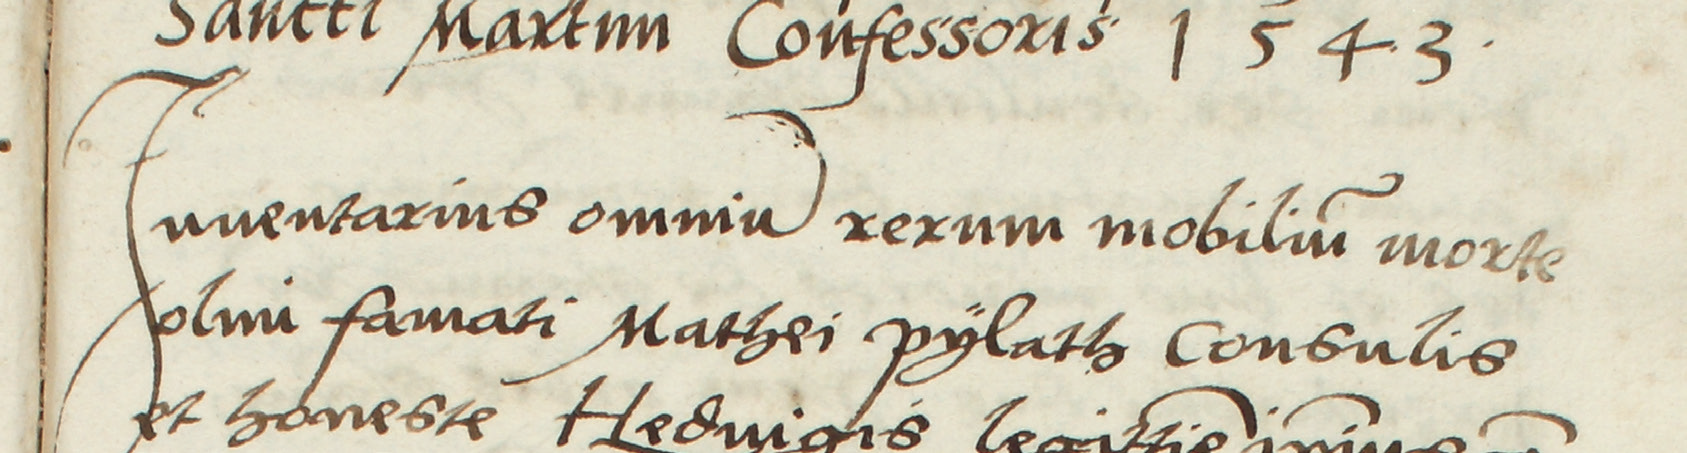 Sancti Martini Confessoris 1543.
Inventarius omniu rerum mobiliu morte
olim famati Mathei pÿlath Consulis
et honeste Hedvigis legittie ipius